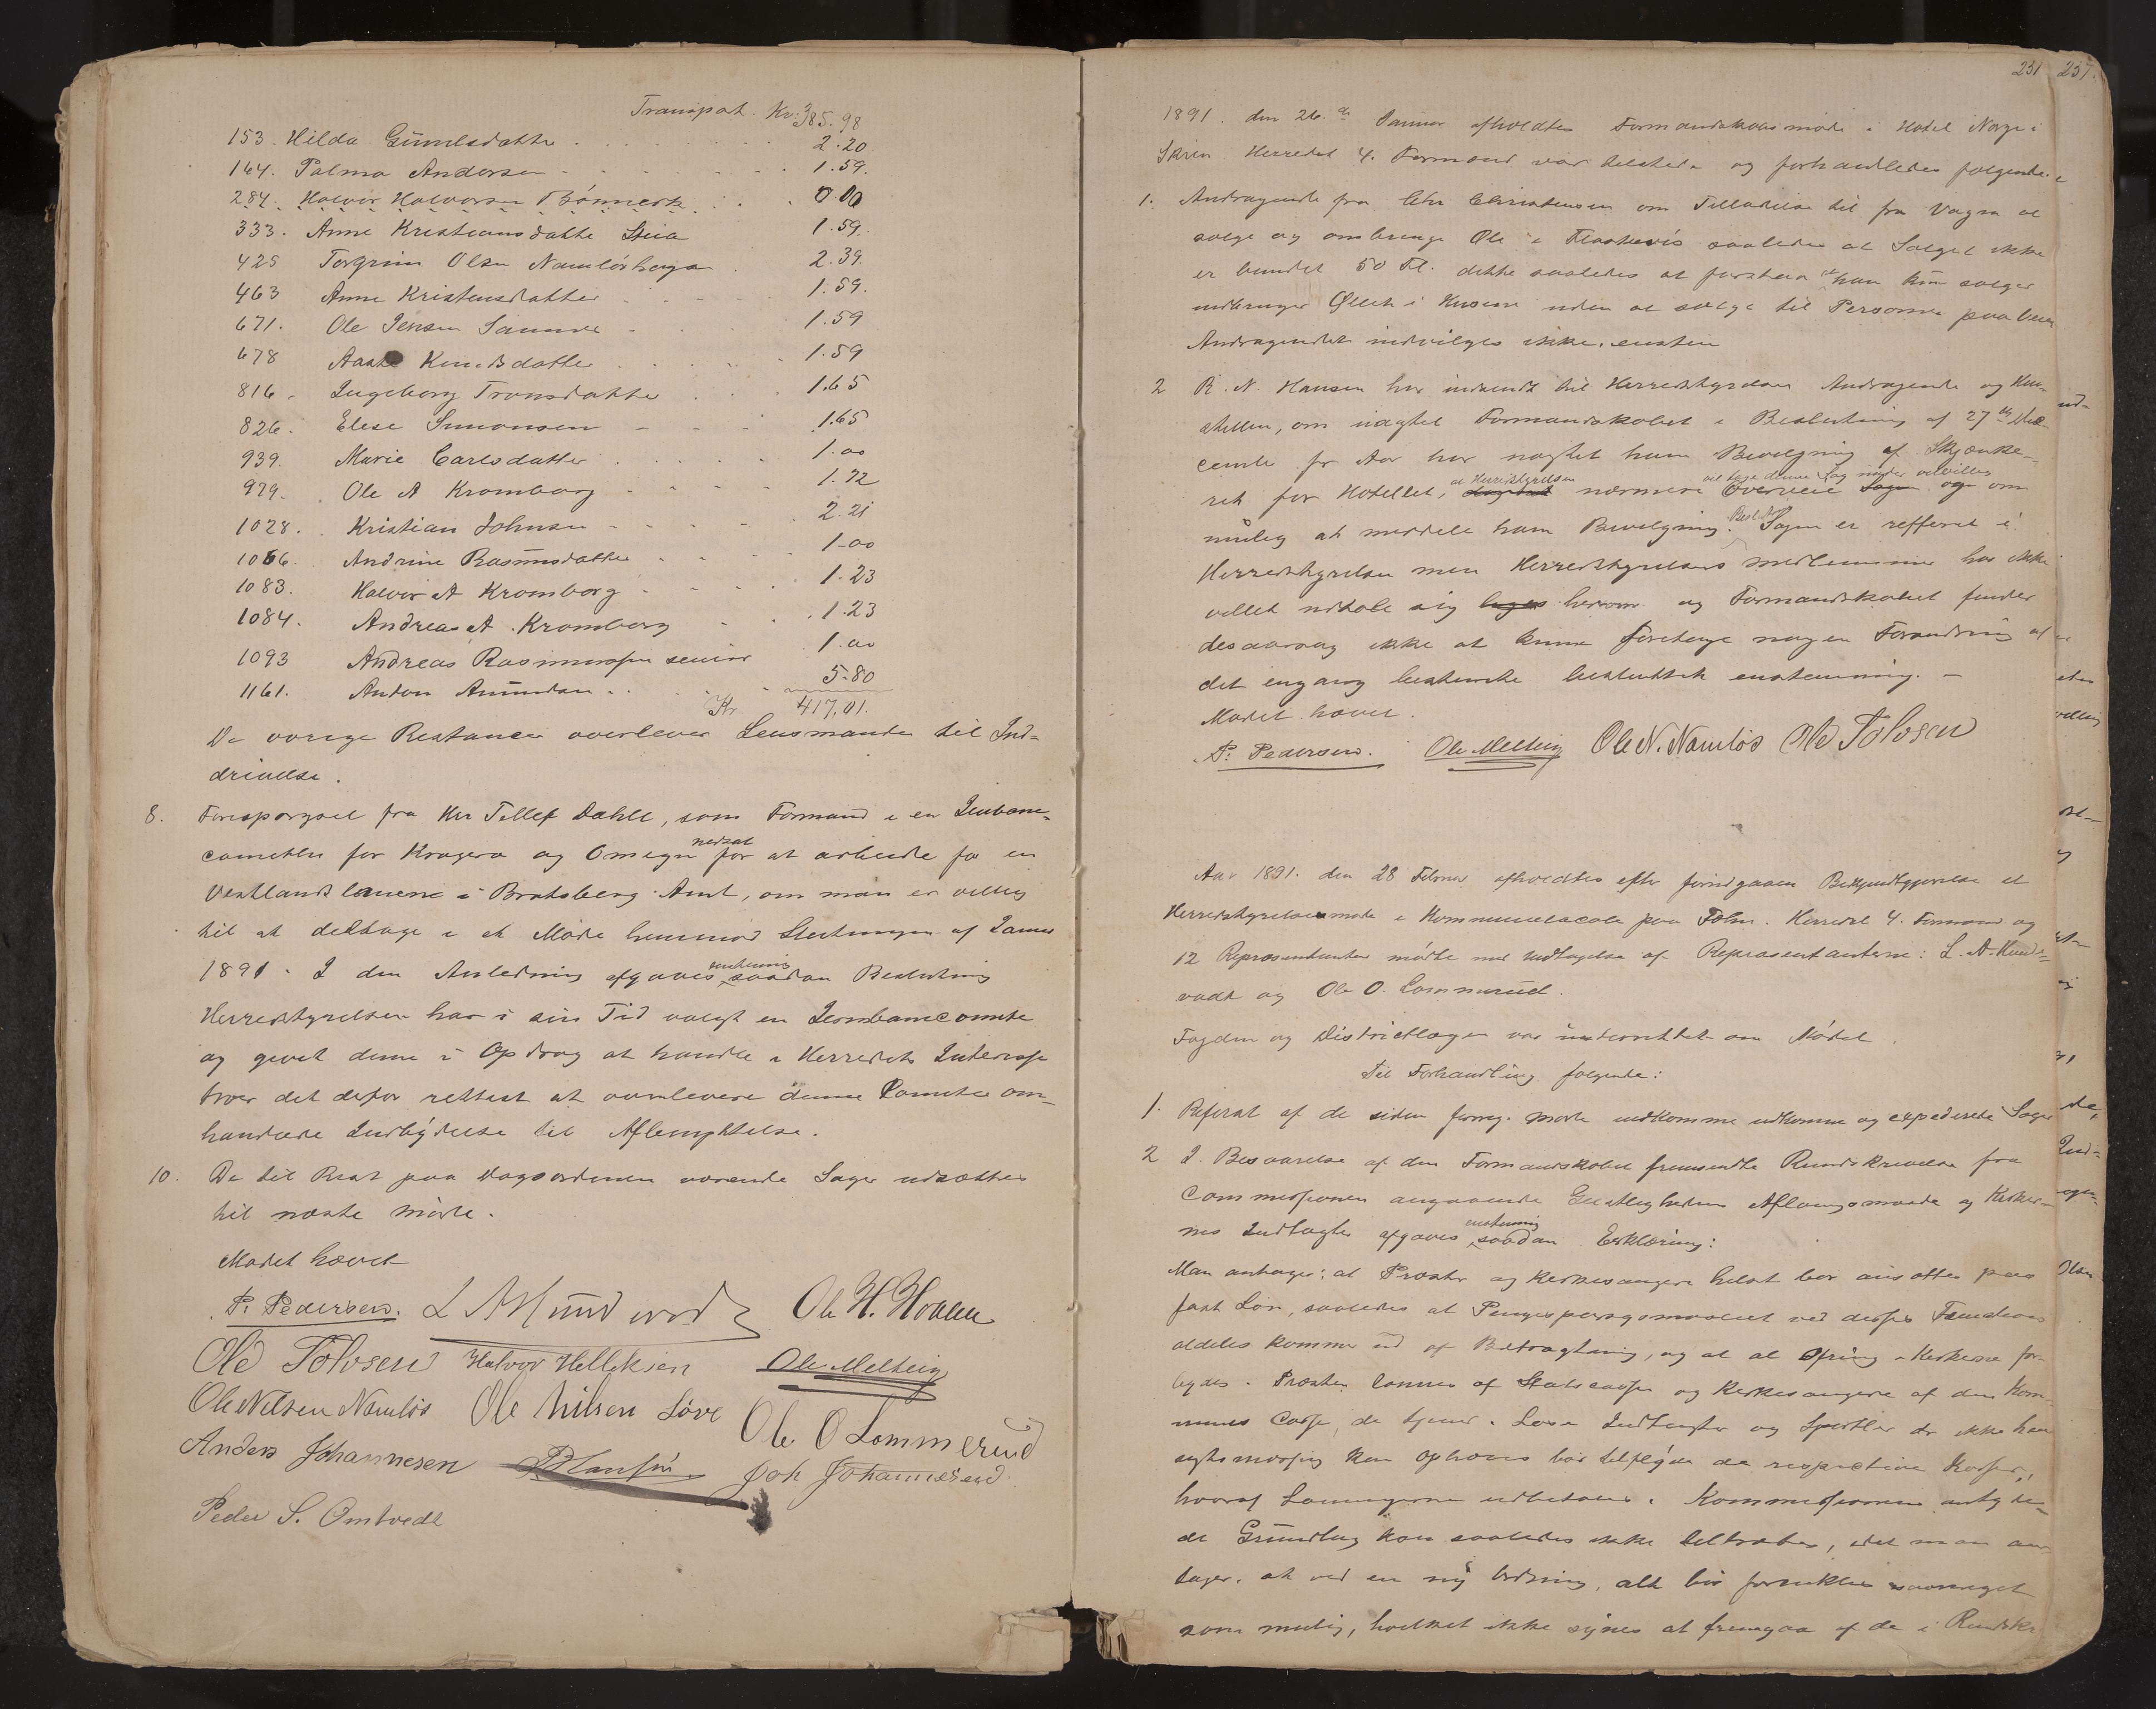 Transport. Kr: 385.98
153. Hilda Gunulsdatter 2.20
164. Palma Andersen 1.59.
284. Halvor Halvorsen 0.00
333. Anne Kristiansdatter 1.59.
425 Torgrim Olsen 2.39.
463 Anne Kristensdatter 1.59.
671. Ole Jensen 1.59
678 Aaste Knudsdatter 1.59
816. Ingeborg Tronsdatter 1.65
826. Elise Simonsen 1.65
939. Marie Carlsdatter 1.00
979. Ole A Kromborg 1.22
1028. Kristian Johnsen 2.21
1066. Andrine Rasmusdatter 1.00
1083. Halvor A Kromborg 1.23
1084. Andreas A. Kromborg 1.23
1093 Andreas Rasmussen senior 1.00
1161. Anton Amundsen 5.80
Kr 417,01.
De øvrige Restancer overlever Lensmanden til Ind=
drivelse.
8. Forespørgsel fra Hr Tellef Dahll, som Formand i en Jernbane-
comitee for Kragerø og Omegn nedsat for at arbeide for en
Vestlandsbanene i Bratsberg Amt, om man er villig
til at deltage i et Møde henimod Slutningen af Januar
1891. I den Anledning afgaves enstemmig saadan Beslutning
Herredstyrelsen har i sin Tid valgt en Jernbanecomite
og givet denne i Opdrag at handle i Herredets Interesse
tror det derfor rettest at overlevere denne Comitee om-
handlede Indbydelse til Afbenyttelse.
10. De til Rest paa Dagsordenen værende Sager udsættes
til næste Møde.
Mødet hævet
P. Pedersen. L A Mundvad Ole H. Hoslem
Ole Tolvsen Halvor Hellekien Ole Melteig
Ole Nilsen Namløs Ole Nilsen Løve Ole O Lommerud
Anders Johannesen R Hansen Joh Johannesen
Peder S. Omtvedt
231 237.
1891. den 26de Januar afholdtes Formandskabsmøde i Hotel Norge i
Skien Herredet 4. Formænd var tilstede og forhandledes følgende:
1. Andragende fra Chr Christensen om Tilladelse til fra Vogn at
sælge og ombringe Øl i Flaskevis saaledes at Salget ikke
er bundet 50 Fl. dette saaledes at forstaa at han kun sælger
indbringer Øllet i Husene uden at sælge til Personer paa Veien
Andragendet indvilges ikke. enstem
2 R. N. Hansen har indsendt til Herredstyrelsen Andragende og Hen-
stillen, om nagtet Formandskabet i Beslutning af 27de Dece-
cember f. Aar har nægtet ham Bevilgning af Skjænke-
ret for Hotellet, at Herredstyrelsen vil tage denne Sag under velvillig
nærmere Overveielse og om
mulig at meddele ham Bevilgning. Besl. Sagen er refferert i
Herredstyrelsen men Herredstyrelsens medlemmer har ikke
villet udtale sig herom og Formandskabet finder
desaarsag ikke at kunne foretage nogen Forandring af
det engang bestemte besluttet enstemmig. -
Mødet hævet.
P. Pedersen. Ole Melteig Ole N. Namløs Ole Tolvsen
Aar 1891. den 28 Februar afholdtes efter forudgaaen Bekjendtgjørelse et
Herredstyrelsesmøde i Kommunelocale paa Holm. Herredet 4. Formænd og
12 Repræsentanter mødte med Undtagelse af Repræsentanterne: L. A. Mund-
vadt og Ole O. Lommerud.
Fogden og Districtlægen var underrettet om Mødet.
Til Forhandling følgende:
1. Referat af de siden forrige møde indkomne udkomne og expederede Sager
2 I Besvarelse af den Formandskabet fremsendte Rundskrivelse fra
Commissionen angaaende Geistlighedens Aflønningsmaade og Kirker-
nes Indtægter afgaves enstemmig saadan Erklæring:
Man antager; at Prester og Kirkesangere helst bør ansættes paa
fast Løn, saaledes at Pengespørgsmaalet ved disses Functioner
aldeles kommer ud af Betragtning, og at al Ofring i Kirkerne for-
bydes. Presten lønnes af Statscassen og Kirkesangere af den Kom-
munes Casse, de tjener. Løse Indtægter og Sportler der ikke hen-
sigtsmæssig kan ophæves bør tilflyde de respective Kasser,
hvoraf Lønningerne udbetales. Kommissionens antyde-
de Grundlag kan saaledes ikke tiltrædes, idet man an-
tager, at ved en ny Ordning, alt bør forenkles saameget
som mulig, hvilket ikke synes at fremgaa af de i Rundskr